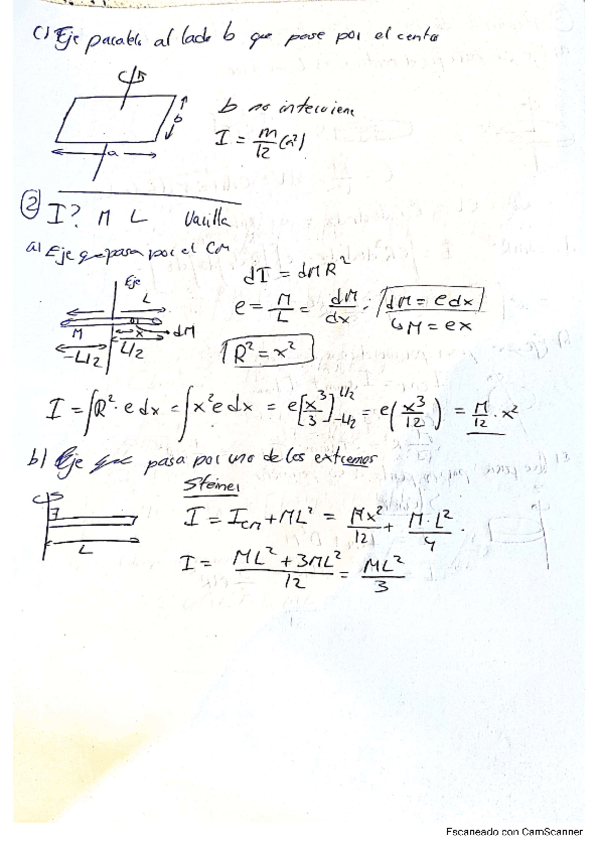 c) Eje paralelo al lado b que pase por el centro
b
a
b no interviene
I = m/12 (a²)
② I? M L Varilla
a) Eje que pasa por el CM
Eje
L
M
x
dM
-L/2
L/2
dI = dM R²
e = M/L = dM/dx ; dM = e dx
↳ M = ex
R² = x²
I = ∫R² · e dx = ∫x² e dx = e[x³/3]^{L/2}_{-L/2} = e(x³/12) = M/12 · x²
b) Eje que pasa por uno de los extremos
Steiner
L
I = I_{CM} + ML² = Mx²/12 + M·L²/4 .
I = ML² + 3ML²/12 = ML²/3
Escaneado con CamScanner